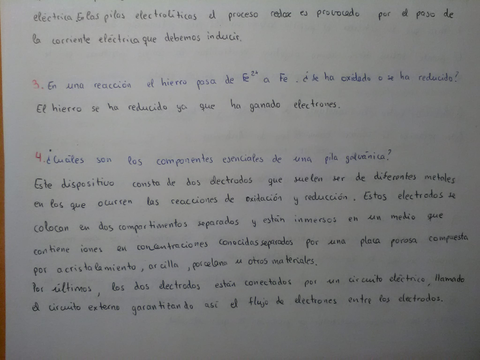 eléctrica. En las pilas electrolíticas el proceso redox es provocado por el paso de
la corriente eléctrica que debemos inducir.
3. En una reacción el hierro pasa de Fe²⁺ a Fe. ¿se ha oxidado o se ha reducido?
El hierro se ha reducido ya que ha ganado electrones.
4. ¿Cuáles son los componentes esenciales de una pila galvánica?
Este dispositivo consta de dos electrodos que suelen ser de diferentes metales
en los que ocurren las reacciones de oxidación y reducción. Estos electrodos se
colocan en dos compartimentos separados y están inmersos en un medio que
contiene iones en concentraciones conocidas separados por una placa porosa compuesta
por acristalamiento, arcilla, porcelana u otros materiales.
Por últimos, los dos electrodos están conectados por un circuito eléctrico, llamado
el circuito externo garantizando así el flujo de electrones entre los electrodos.